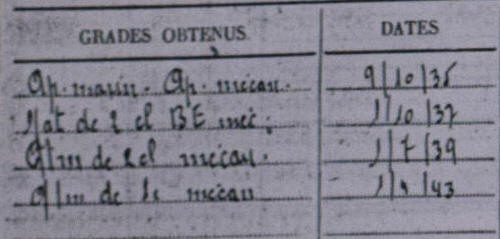 GRADES OBTENUS DATES
Ap. marin. Ap. mécan. 9/10/35
Mat de 2 cl BE méc. 1/10/37
Qtm de 2 cl mécan. 1/7/39
Qtm de 1e mécan 1/1/43